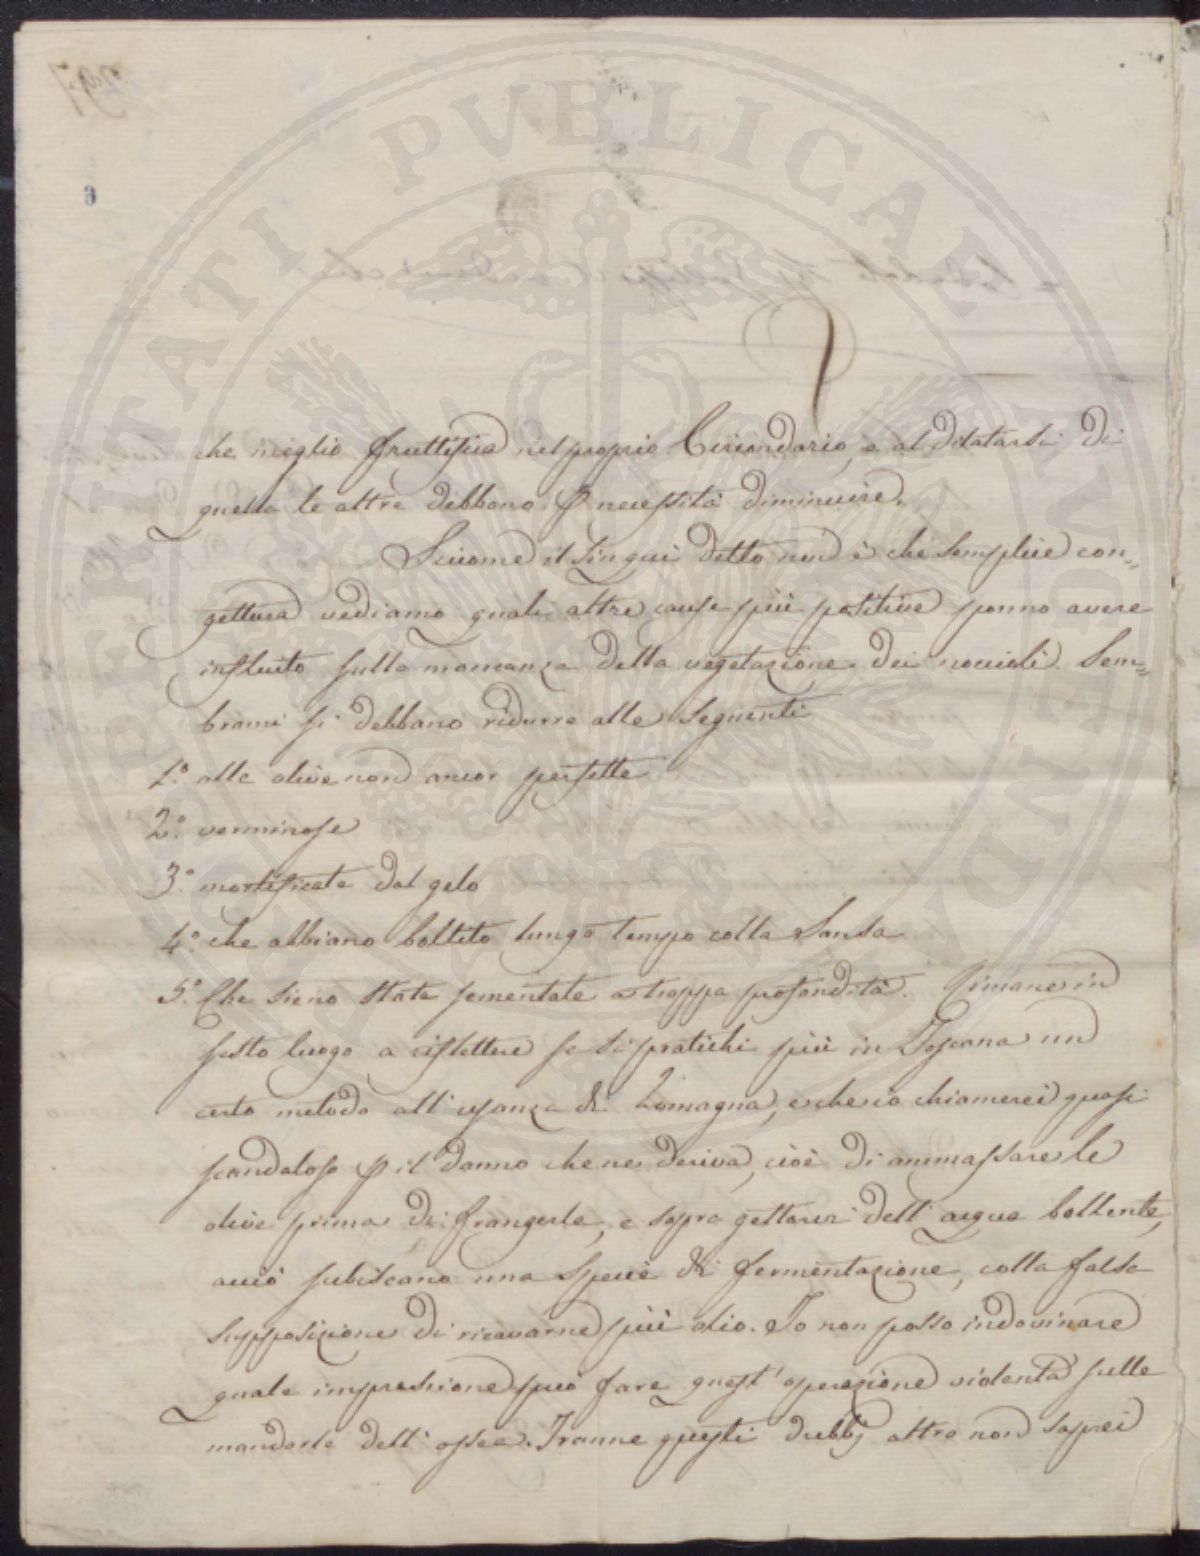 6
che meglio fruttifica nel proprio Circondario, e al dilatarsi di
quella le altre debbono p necessità diminuire.
Siccome il sin qui detto non è che semplice con=
gettura vediamo quali altre cause più positive ponno avere
influito sulla mancanza della vegetazione dei noccioli. Sem=
brami si debbano ridurre alle seguenti
1.° alle olive non ancor perfette
2.° verminose
3.° mortificate dal gelo
4.° che abbiano bollito lungo tempo colla Sansa
5.° Che sieno state sementate a troppa profondità. Rimane in
sesto luogo a riflettere se si pratichi più in Toscana un
certo metodo all'usanza di Romagna, e che io chiamerei quasi
scandaloso p il danno che ne deriva, cioè di ammassare le
olive prima di frangerle, e sopra gettarvi dell'acqua bollente,
acciò subiscano una specie di fermentazione, colla falsa
supposizione di ricavarne più olio. Io non posso indovinare
quale impressione può fare quest'operazione violenta sulle
mandorle dell'ossea. Tranne questi dubbj altro non saprei